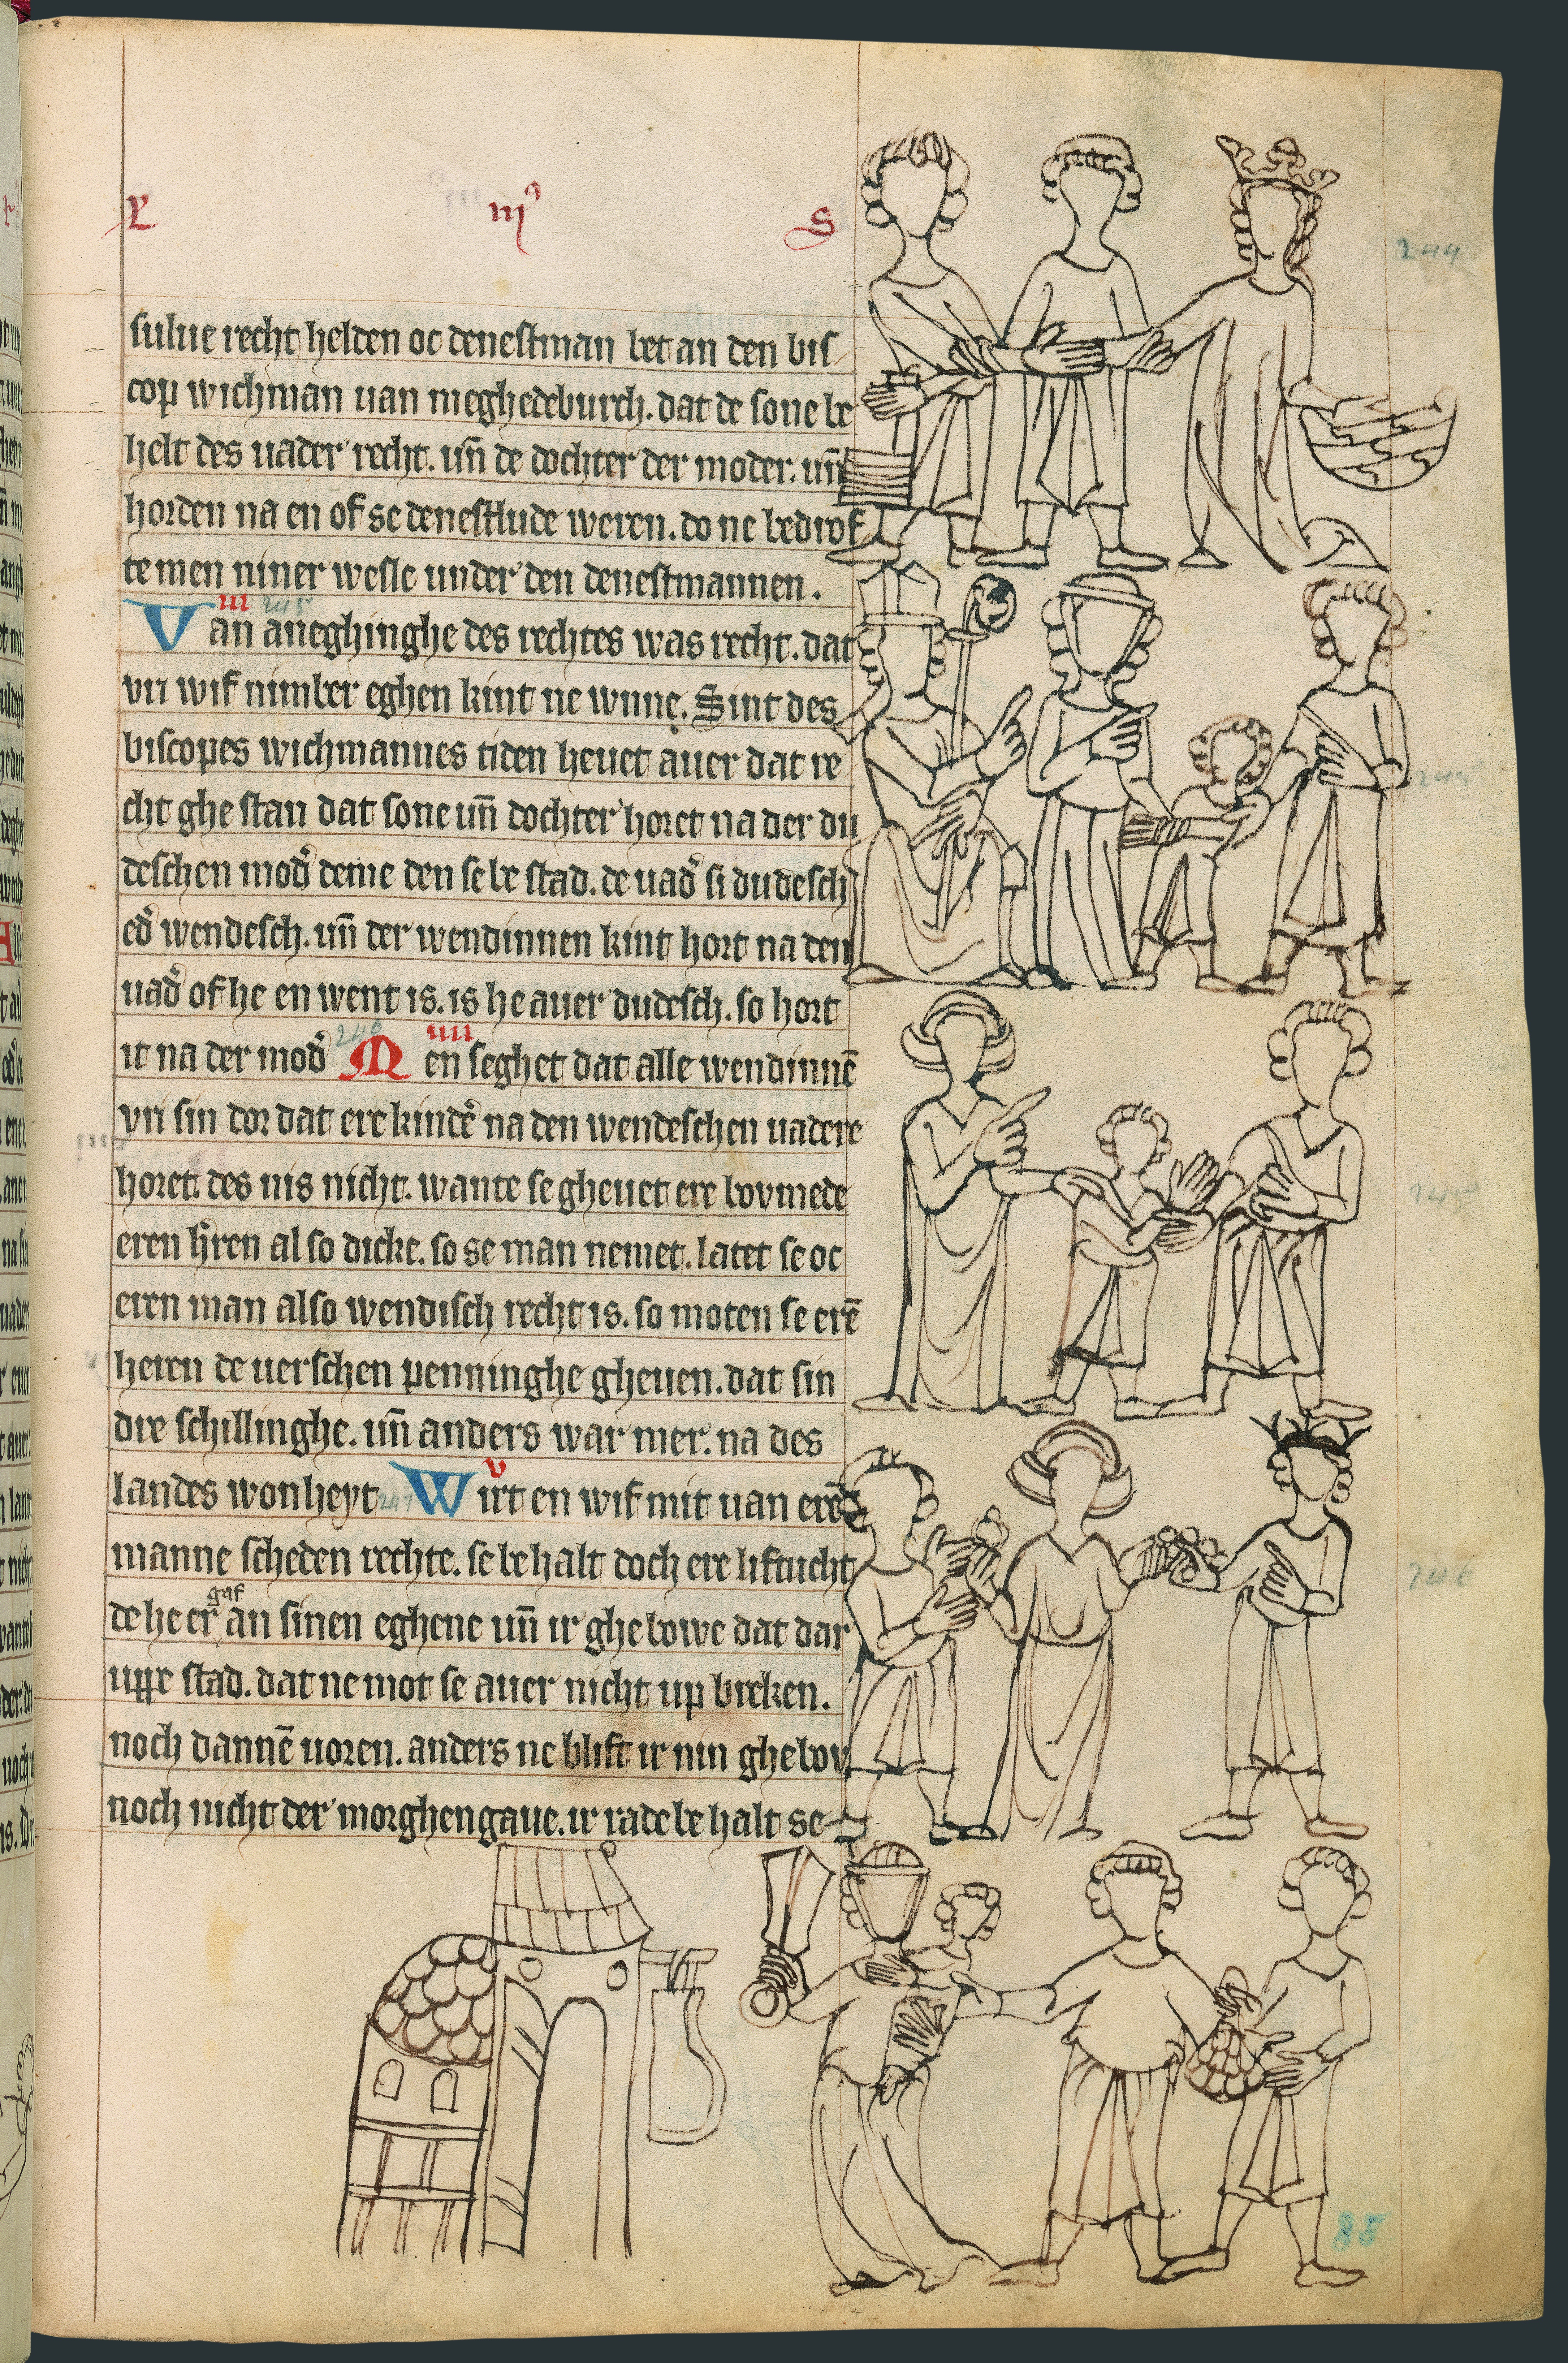 L iijꝰ S
sulue recht helden oc denestman bet an den bis
cop wichman uan meghedeburch. dat de sone be
helt des uader recht. un̄ de dochter der moder. un̄
horden na en of se denestlude weren. do ne bedrof
te men niner wesle under den denestmannen.
iii 245
Van aneghinghe des rechtes was recht. dat
vri wif nimber eghen kint ne wnne. Sint des
biscopes wichmannes tiden heuet auer dat re
cht ghe stan dat sone un̄ dochter horet na der du
deschen mod̉ deme den se be stad. de uad̉ si dudesch
ed̉ wendesch. un̄ der wendinnen kint hort na den
uad̉ of he en went is. is he auer dudesch. so hort
it na der mod̉ 246 iiii Men seghet dat alle wendinnē
vri sin dor dat ere kind̉e na den wendeschen uadere
horet. des nis nicht. wante se gheuet ere bovmede
eren h̉ren al so dicke. so se man nemet. latet se oc
eren man also wendisch recht is. so moten se erē
heren de uerschen penninghe gheuen. dat sin
dre schillinghe. un̄ anders war mer. na des
landes wonheyt 247 v Wirt en wif mit uan erem
manne scheden rechte. se be halt doch ere liftucht
de he er gaf an sinen eghene un̄ ir ghebowe dat dar
uppe stad. dat ne mot se auer nicht up breken.
noch dannē uoren. anders ne blift ir nin ghebov
noch nicht der morghengaue. ir rade be halt se
244
245
245
246
85